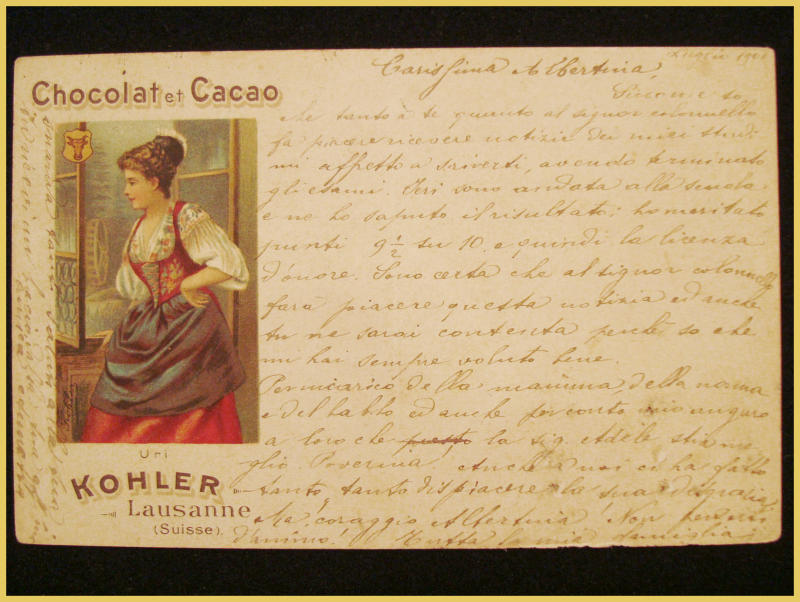 Chocolat et Cacao
Uri
KOHLER
Lausanne
(Suisse).
1901
Carissima Albertina,
Siccome so
che tanto a te quanto al signor colonnello
fa piacere ricevere notizie dei miei studi
mi affretto a scriverti, avendo terminato
gli esami. Ieri sono andata alla scuola
e ne ho saputo il risultato; ho meritato
punti 9 1/2 su 10 e quindi la licenza
d'onore. Sono certa che al signor colonnello
farà piacere questa notizia ed anche
tu ne sarai contenta perchè so che
mi hai sempre voluto bene.
Per incarico della mamma, della nonna
e del babbo ed anche per conto mio auguro
a loro che presto la sig. Adele stia me-
glio. Poverina! Anche a noi ci ha fatto
tanto, tanto dispiacere la sua disgrazia.
Ma! coraggio Albertina! Non perderti
d'animo! Tutta la mia famiglia